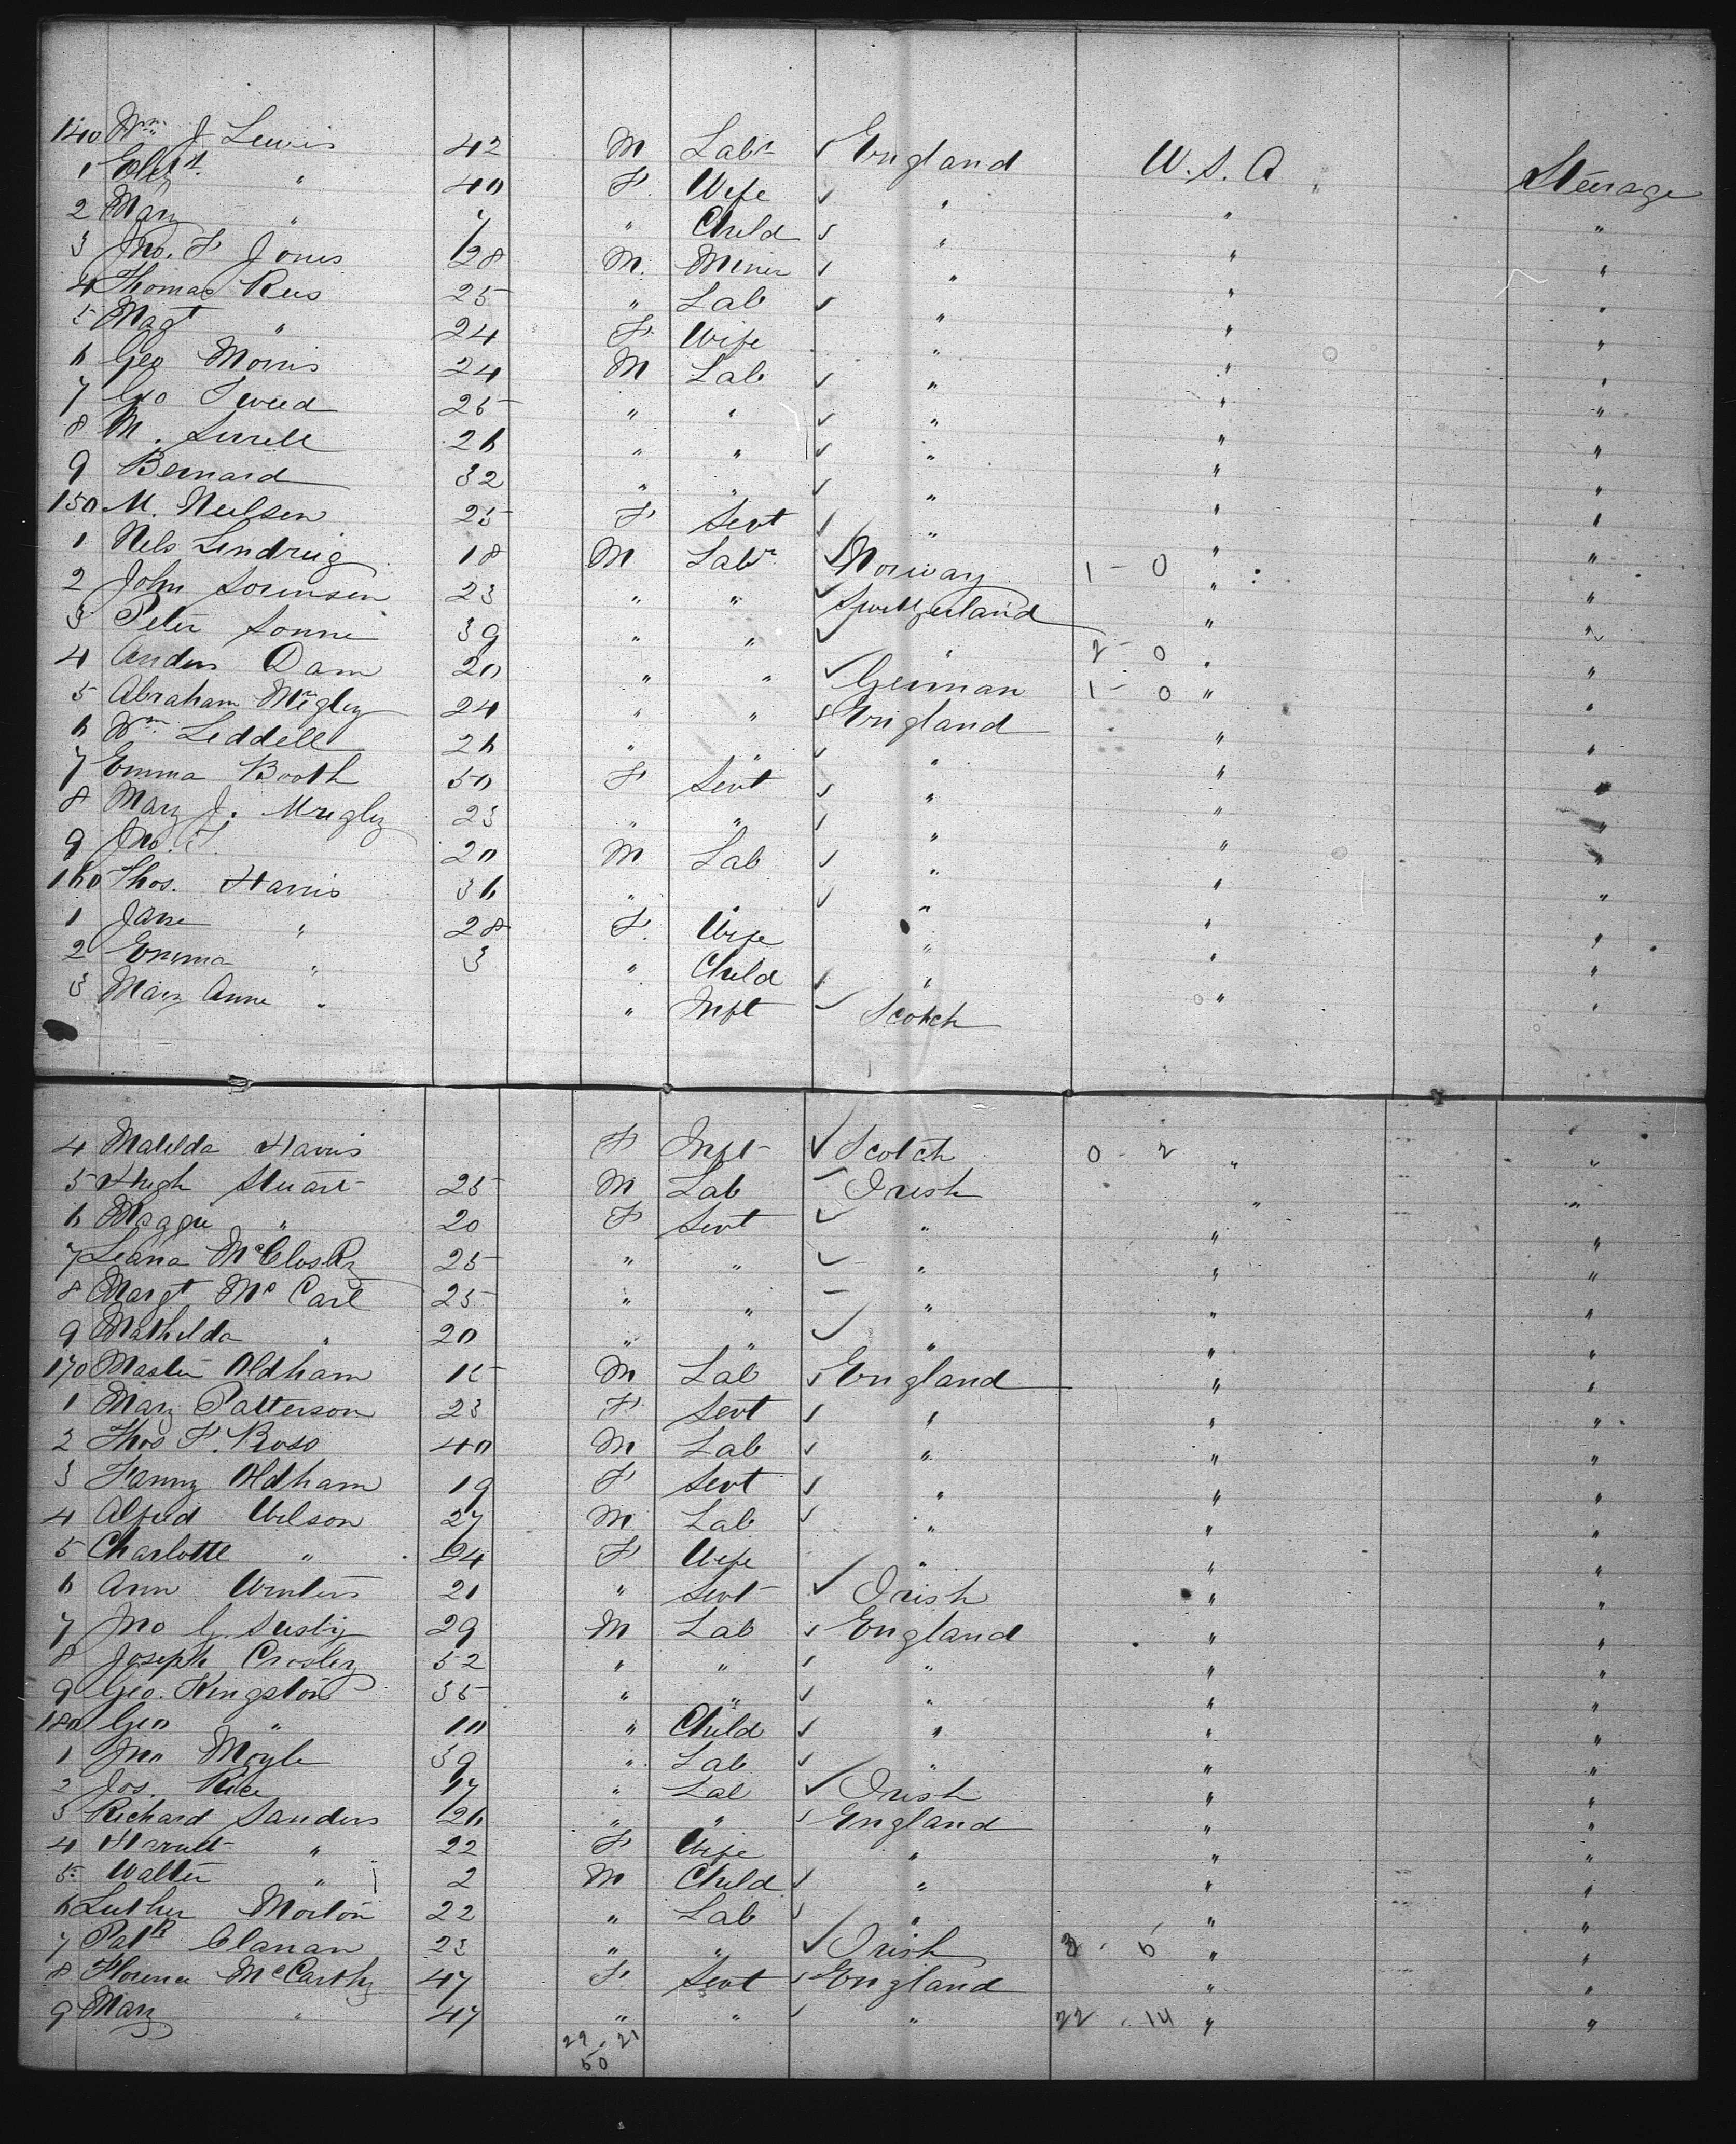 140 Wm J Lewis 42 M Labr England U.S.A Steerage
1 Elizt " 40 F Wife " " "
2 Mary " 7 " Child " " "
3 Jno. F Jones 28 M. Miner " " "
4 Thomas Rees 25 " Lab " " "
5 Magt " 24 F Wife " " "
6 Geo Morris 24 M Lab " " "
7 Geo Tweed 25 " " " " "
8 M. 26 " " " " "
9 Bernard 32 " " " " "
150 M. Neilsen 25 F Servt " " "
1 Nels 18 M Labr Norway 1-0 " "
2 John Sorensen 23 " " Switzerland " "
3 Peter Sonne 39 " " " 2-0 " "
4 Anders Dam 20 " " German 1-0 " "
5 Abraham Wrigley 24 " " England " "
6 Wm Leddell 26 " " " " "
7 Emma Booth 50 F Servt " " "
8 Mary J. Wrigley 23 " " " " "
9 Jno. T. 20 M Lab " " "
160 Thos. Harris 36 " " " " "
1 Jane " 28 F. Wife " " "
2 Emma " 3 " Child " " "
3 Mary Anne " " Inft Scotch " "
4 Matilda Harris F Inft Scotch 0-2 " "
5 Hugh Stuart 25 M Lab Irish " "
6 Maggie " 20 F Servt " " "
7 McClosky 25 " " " " "
8 Margt Mc Carl 25 " " " " "
9 Mathilda " 20 " " " " "
170 Master Oldham 15 M Lab England " "
1 Mary Patterson 23 F Servt " " "
2 Thos F. Ross 40 M Lab " " "
3 Fanny Oldham 19 F Servt " " "
4 Alfred Wilson 27 M Lab " " "
5 Charlotte " 24 F Wife " " "
6 Ann Winters 21 " Servt Irish " "
7 Jno G. 29 M Lab England " "
8 Joseph Crosley 52 " " " " "
9 Geo. Kingston 35 " " " " "
180 Geo " 10 " Child " " "
1 Jno Moyle 39 " Lab " " "
2 Jos. Rice 17 " Lab Irish " "
3 Richard Sanders 26 " " England " "
4 " 22 F Wife " " "
5 Walter " 2 M Child " " "
6 Luther Morton 22 " Lab " " "
7 Patk Clanan 23 " " Irish 3 . 6 " "
8 Florence McCarthy 47 F. Servt England " "
9 Mary " 47 " " " 22 . 14 " "
29 . 21
50